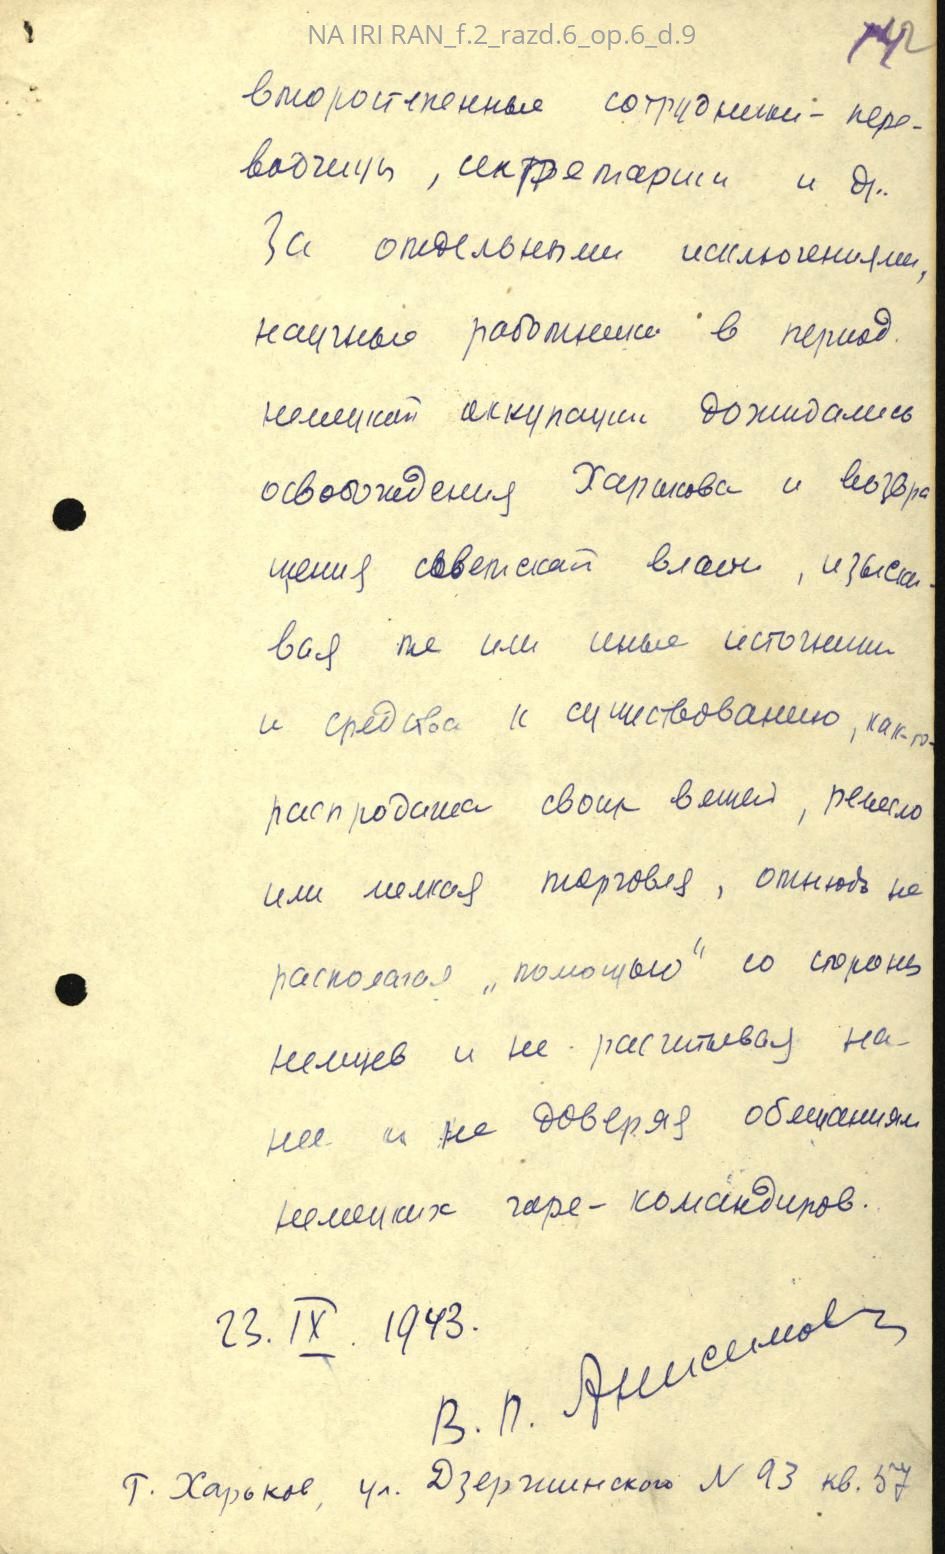 NA IRI RAN_f.2_razd.6_op.6_d.9
второстепенные сотрудники- пере-
водчицы, секретарши и др.
За отдельными исключениями,
научные работники в период
немецкой оккупации дожидались
освобождения Харькова и возвра
щения советской власти, изыски-
вая те или иные источники
и средства к существованию, как-то-
распродажа своих вещей, ремесло
или мелкая торговля, отнюдь не
располагая „помощью" со стороны
немцев и не расчитывая на-
нее и не доверяя обещаниям
немецких горе-командиров.
23. IX. 1943.
В. П. Анисимов
Г. Харьков, ул. Дзержинского N 93 кв. 57